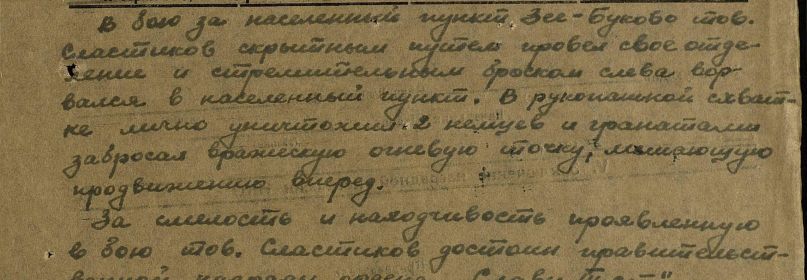 В бою за населенный пункт Зее-Буково тов.
Сластиков скрытным путем провел свое отде-
ление и стремительным броском слева вор-
вался в населенный пункт. В рукопашной схват-
ке лично уничтожил 2 немцев и гранатами
забросал вражескую огневую точку, мешающую
продвижению вперед.
За смелость и находчивость проявленную
в бою тов. Сластиков достоин правительст-
венной награды